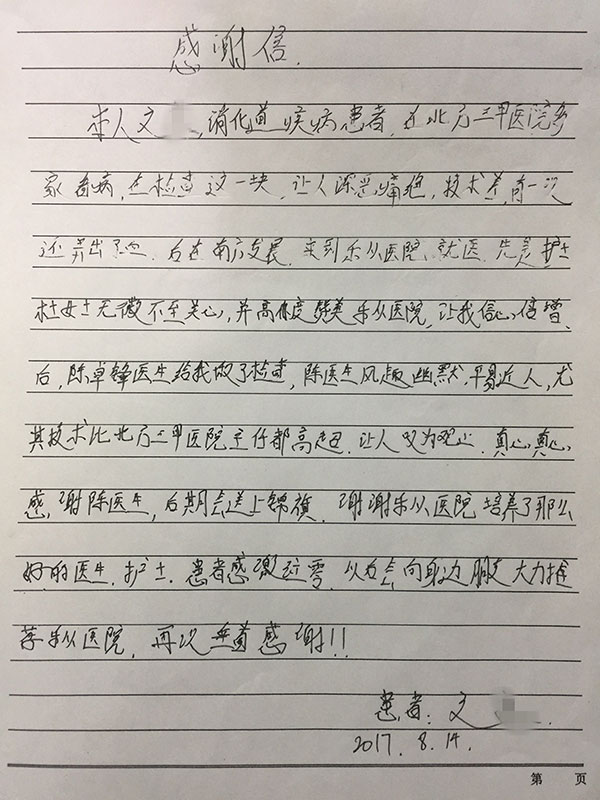 感谢信.
本人文 ,消化道疾病患者.在北方三甲医院多
家看病,在检查这一块,让人深恶痛绝,技术差,有一次
还弄出了血.后在南方发展.来到乐从医院就医.先是护士
杜女士无微不至关心,并高度赞美乐从医院,让我信心倍增.
后,陈卓锋医生给我做了检查,陈医生风趣幽默,平易近人,尤
其技术比北方三甲医院主任都高超.让人叹为观止.真心真心
感谢陈医生,后期会送上锦旗.谢谢乐从医院培养了那么
好的医生.护士.患者感激涕零.以后会向身边朋友大力推
荐乐从医院,再次 感谢!!
患者:文 .
2017.8.14.
第 页